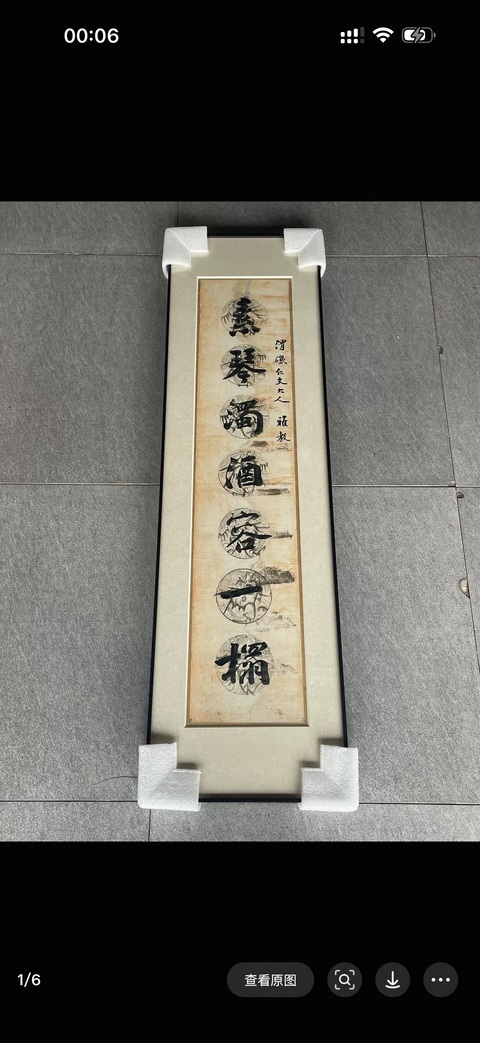 00:06
渭儀仁丈大人 雅教
素琴濁酒容一榻
1/6
查看原图